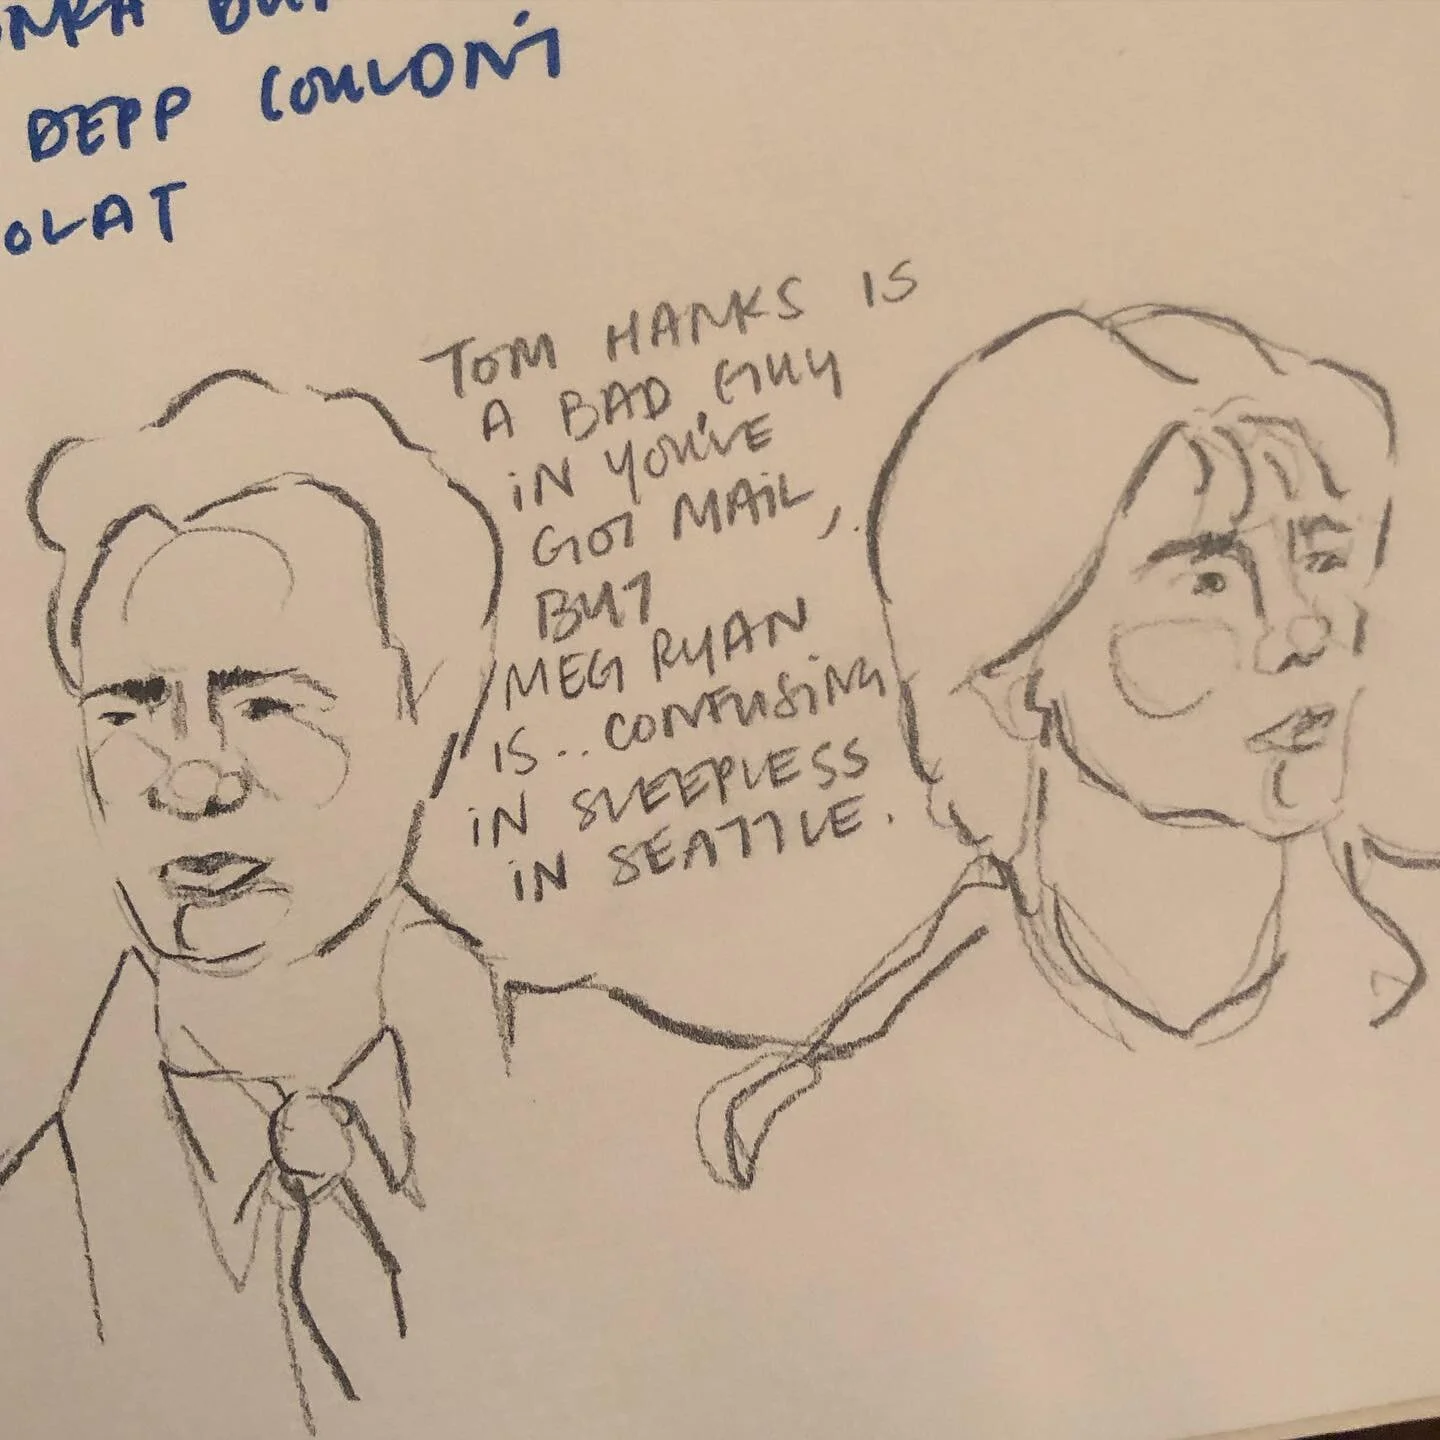 DEPP COULDN'T
OLAT
TOM HANKS IS
A BAD GUY
IN YOU'VE
GOT MAIL,
BUT
MEG RYAN
IS.. CONFUSING
IN SLEEPLESS
IN SEATTLE.